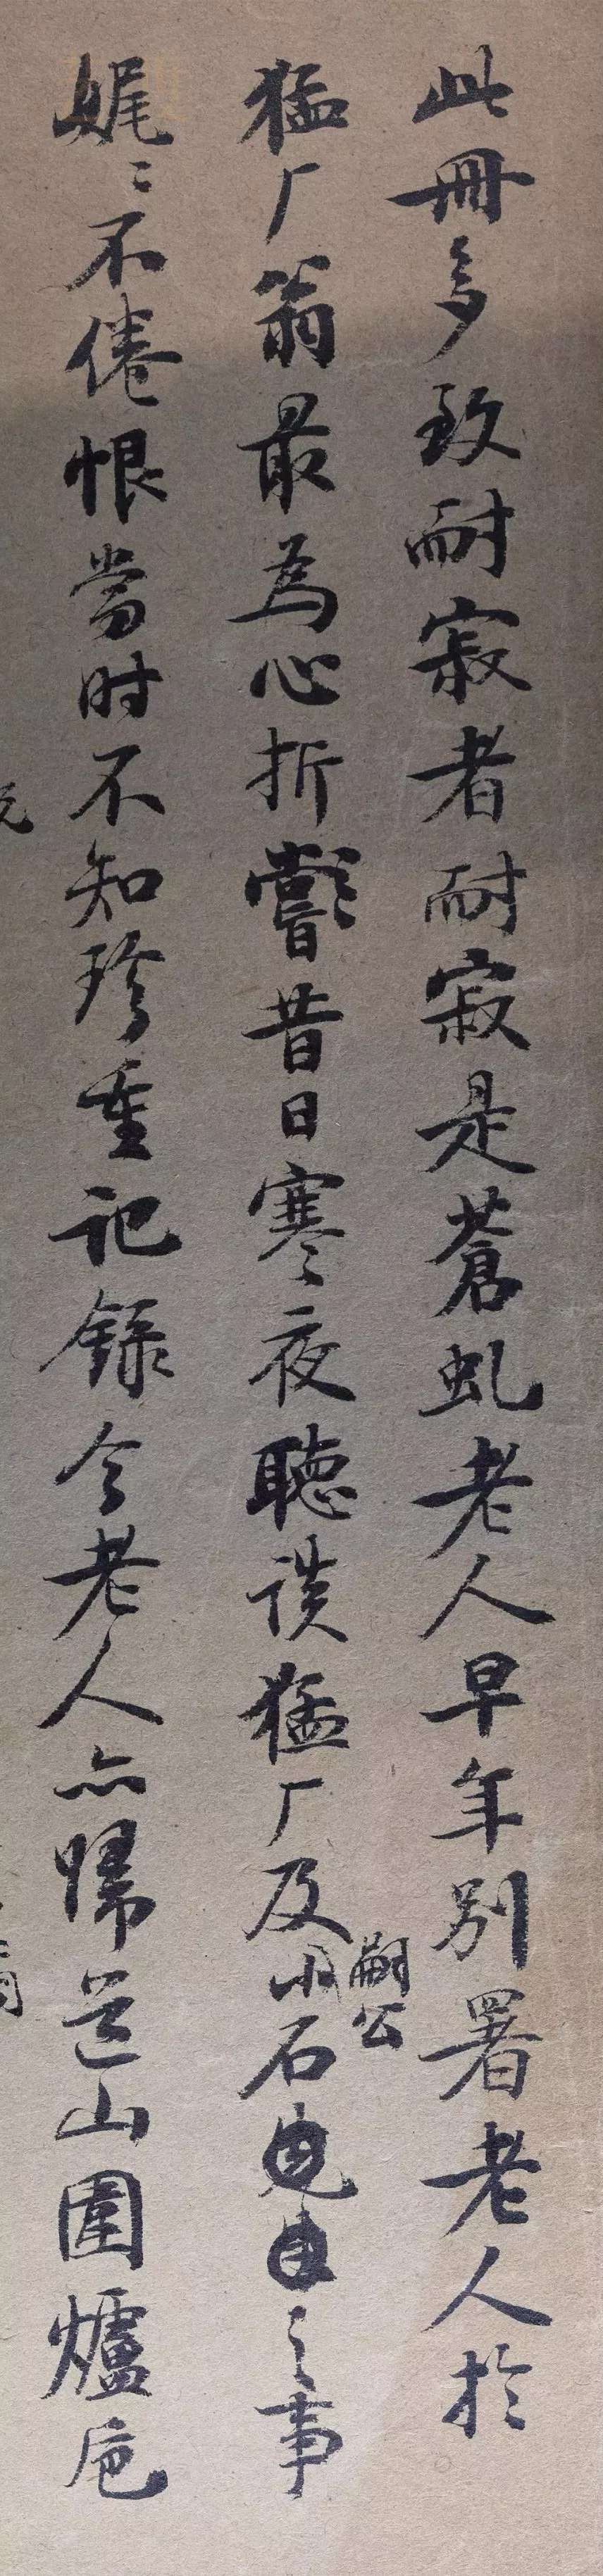 此冊多致耐寂者耐寂是蒼虬老人早年別署老人於
猛厂翁最為心折嘗昔日寒夜聽談猛厂及小石嗣公之事
娓〻不倦恨當時不知珍重記錄今老人亦歸道山圍爐